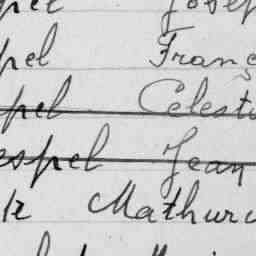 pel Josep
pel Franç
pel Celesti
espel Jean
k Mathuri